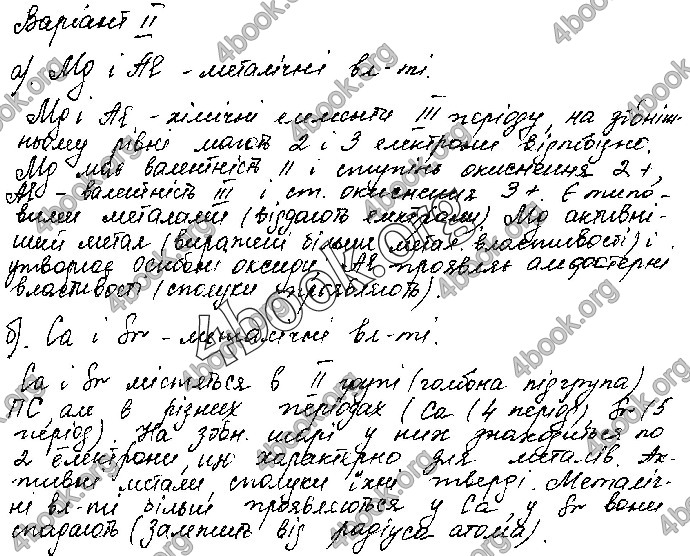 Варіант II
а). Mg і Al - металічні вл-ті.
Mg і Al - хімічні елементи III періоду, на зовніш-
ньому рівні мають 2 і 3 електрони відповідно.
Mg має валентність II і ступінь окиснення 2+,
Al - валентність III і ст. окиснення 3+. Є типо-
вими металами (віддають електрони) Mg активні-
ший метал (виражені більше метал. властивості) і
утворює основні оксиди, Al проявляє амфотерні
властивості (сполуки проявляють).
б). Ca і Sr - металічні вл-ті.
Ca і Sr містяться в II групі (головна підгрупа)
ПС але в різних періодах (Ca (4 період), Sr (5
період). На зовн. шарі у них знаходиться по
2 електрони, що характерно для металів. Ак-
тивні метали, сполуки їхні тверді. Металіч-
ні вл-ті більше проявляються у Ca, у Sr вони
спадають (залежить від радіуса атома).
4book.org